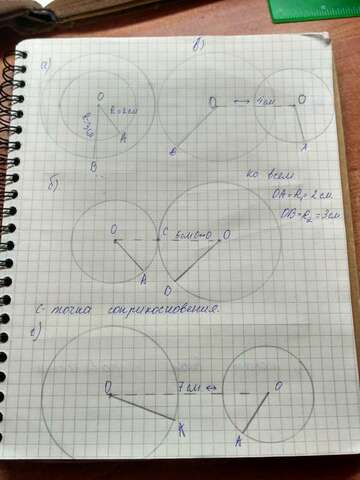 в)
а)
O
R=2см
R=3см
A
B
O ↔ 4 см O
B
A
б)
ко всем
OA=R₁=2 см.
OB=R₂=3см.
O
C
O
A
D
C - точка соприкосновения.
O
7 см ↔
O
K
A